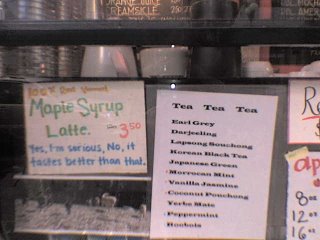 ORANGE JUICE
CREAMSICLE
Maple Syrup
Latte. 3.50
Yes, I'm serious, No, it
tastes better than that.
Tea Tea Tea
Earl Grey
Darjeeling
Lapsong Souchong
Korean Black Tea
Japanese Green
Morrocan Mint
Vanilla Jasmine
Coconut Pouchong
Yerbe Mate
Peppermint
Rooibols
8oz
12oz
16oz